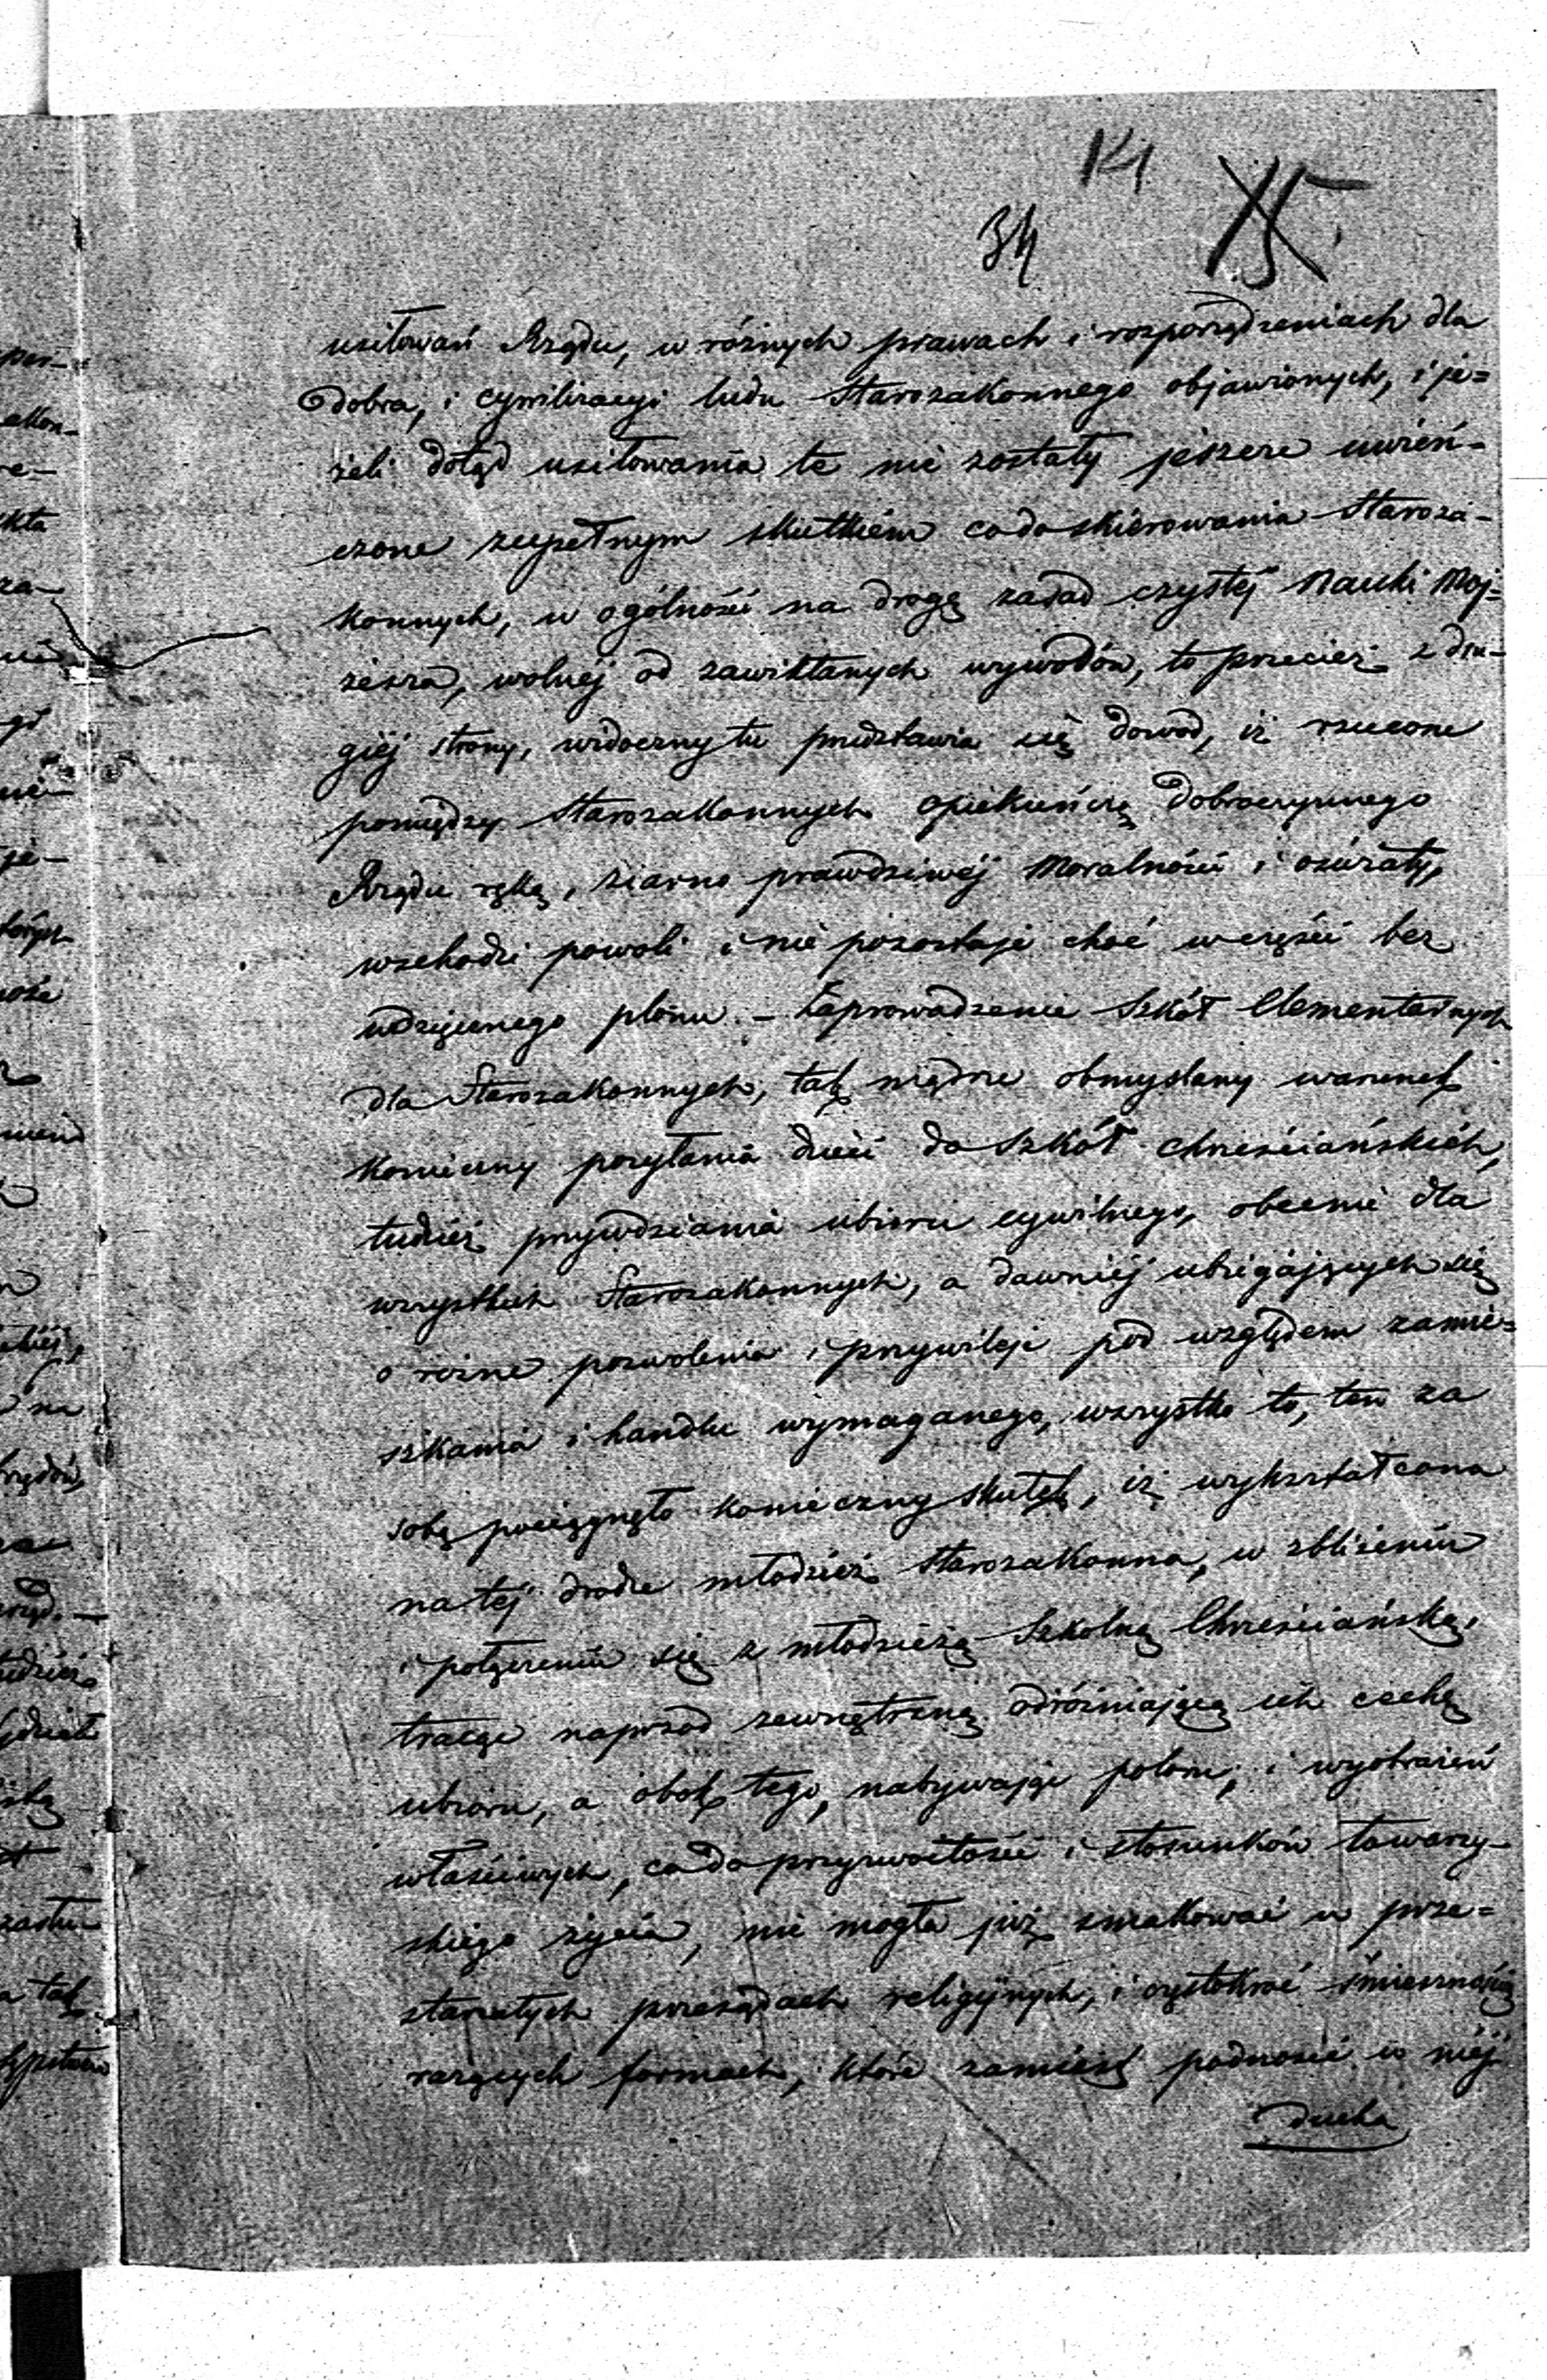 14
34 15.
usiłowań Rządu, w różnych prawach i rozporządzeniach dla
dobra, i cywilizacyi ludu Starozakonnego objawionych, i je=
żeli dotąd usiłowania te nie zostały jeszcze uwień-
czone zupełnym skutkiem co do skierowania Staroza-
konnych, w ogólności na drogę zasad czystej Nauki Moj=
żesza, wolnéj od zawikłanych wywodów, to przecież z dru-
giéj strony, widoczny tu przedstawia się dowód, iż rzucone
pomiędzy Starozakonnych opiekuńczą dobroczynnego
Rządu ręką, ziarno prawdziwéj Moralności i oświaty,
wschodzi powoli i nie pozostaje choć w części bez
wdzięcznego plonu. – Zaprowadzenie Szkół Elementarnych
dla Starozakonnych, tak mądrze obmyślany warunek
konieczny posyłania dzieci do Szkół chrześciańskich,
tudzież przywdziania ubioru cywilnego, obecnie dla
wszystkich Starozakonnych, a dawniéj ubiegających się
o rożne pozwolenia i przywileje pod względem zamie=
szkania i handlu wymaganego, wszystko to, ten za
sobą pociągnęło konieczny skutek, iż wykształcona
na téj drodze młodzież starozakonna, w zbliżeniu
i połączeniu się z młodzieżą Szkolną Chrześciańską,
tracąc naprzod zewnętrzną odróżniającą ich cechę
ubioru, a obok tego, nabywając poloru, i wyobrażeń
właściwych, co do przyzwoitości i stosunków towarzy-
skiego życia, nie mogła już smakować w prze=
starzałych przesądach religijnych, i częstokroć śmiesznością
rażących formach, które zamiast podnosić w niéj
ducha